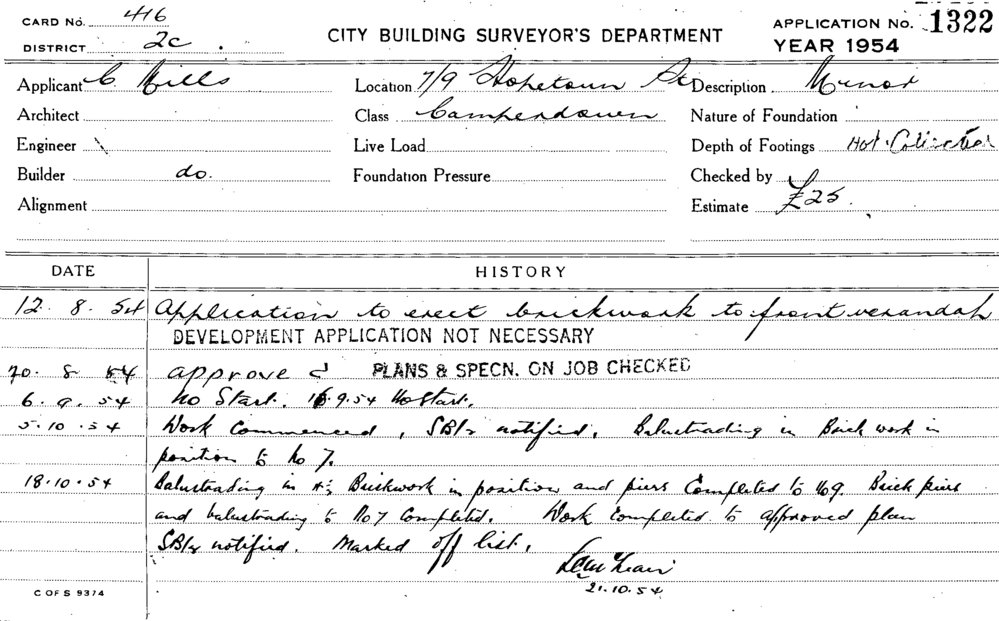 CARD No. 416
DISTRICT 2c.
CITY BUILDING SURVEYOR'S DEPARTMENT
APPLICATION No. 1322
YEAR 1954
Applicant C Mills Location 7/9 Hopetoun St Description Minor
Architect Class Camperdown Nature of Foundation
Engineer Live Load Depth of Footings
Builder do. Foundation Pressure Checked by
Alignment Estimate £25.
DATE HISTORY
12. 8. 54 Application to erect brickwork to front verandah
DEVELOPMENT APPLICATION NOT NECESSARY
20. 8 54 approved PLANS & SPECN. ON JOB CHECKED
6. 9. 54 No Start. 16.9.54 No Start.
5.10.54 Work Commenced, notified. Balustrading in Brick work in
position to No 7.
18.10.54 Balustrading in Brickwork in position and piers Completed to No 9. Brick piers
and balustrading to No 7 Completed. Work Completed to approved plan
notified. Marked off list.
21.10.54
C OF S 9374